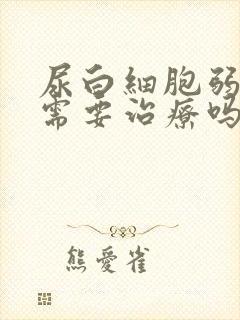 尿白細胞弱
需要治療嗎
熊愛雀